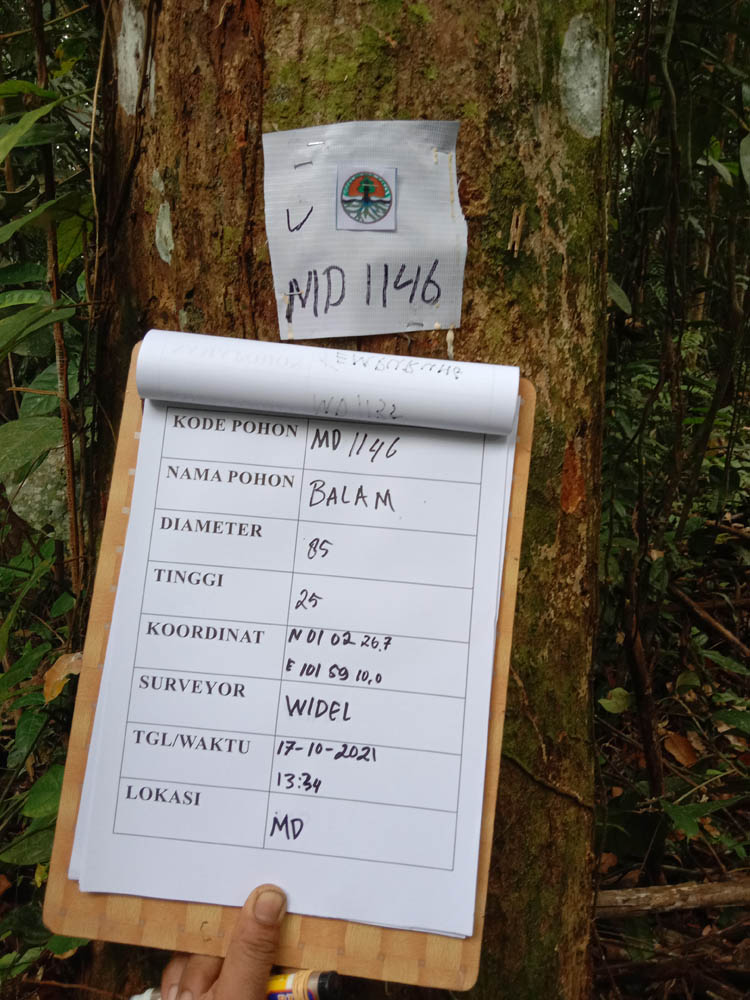 MD 1146
KODE POHON MD 1146
NAMA POHON BALAM
DIAMETER 85
TINGGI 25
KOORDINAT N 01 02 26.7
E 101 59 10,0
SURVEYOR WIDEL
TGL/WAKTU 17-10-2021
13:34
LOKASI MD